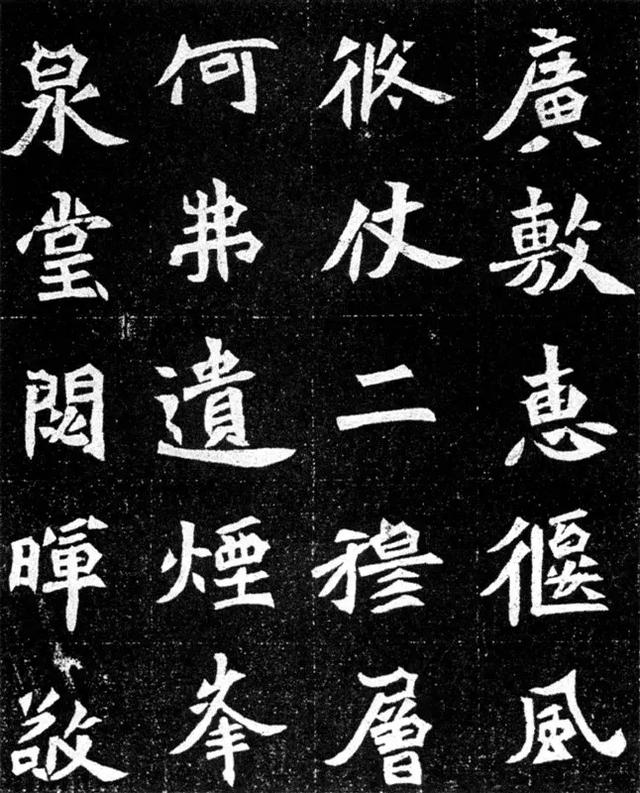 廣敷惠偃風
攸仗二穆層
何弗遺煙峯
泉堂閟暉敬